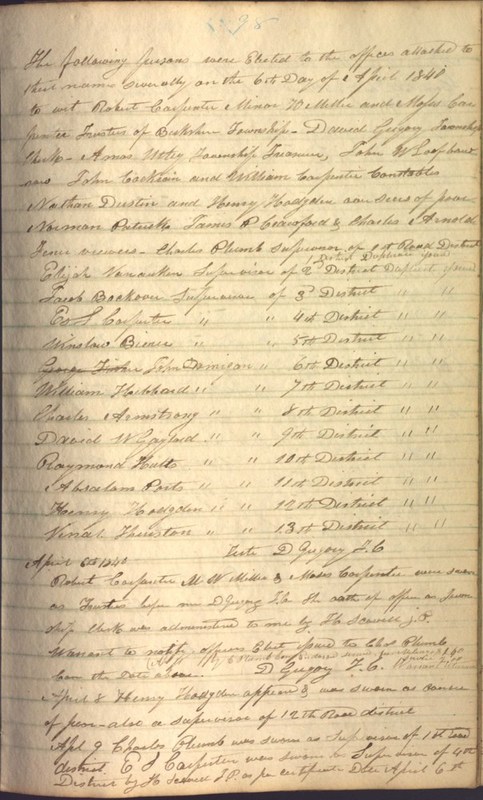 The following persons were Elected to the offices attached to
their names severally on the 6th Day of April 1840
to wit Robert Carpenter Minor W Millie and Moses Car
penter Trustees of Berkshire Township - David Gregory Township
Clerk - Amos Utley Township Treasurer, John W Loofbour
row John Cockrain and William Carpenter Constables
Nathan Dustin and Henry Hodgden overseers of poor
Norman Patrick James P Crawford & Charles Arnold
Fence viewers - Charles Plumb supervisor of 1st Road District
Elijah Vanauken Supervisor of 2d District Duplicate issued
Jacob Bockover Supervisor of 3d District " "
E S Carpenter " " 4th District " "
Winslow Bierce " " 5th District " "
George Fisher John Domigan " " 6th District " "
William Hubbard " " 7th District " "
Charles Armstrong " " 8th District " "
David W Gaylord " " 9th District " "
Raymond Hults " " 10th District " "
Absalam Ports " " 11th District " "
Henry Hodgden " " 12th District " "
Vinal Houston " " 13th District " "
Teste D Gregory T. C
April 6th 1840
Robert Carpenter M W Millie & Moses Carpenter were sworn
as Trustees before me D Gregory T.C. The oath of office as Town
ship Clerk was administered to me by H Sewell J. P.
Warrant to notify officers Elect issued to Chs Plumb
bears the Date above. D Gregory T. C.
April 8 Henry Hodgden appeared & was sworn as overseer
of poor - also a supervisor of 12th Road district
Apl 9 Charles Plumb was sworn as Supervisor of 1st Road
district. E S Carpenter was sworn as Supervisor of 4th
District by H Sewell J P. as per certificate Date April 6th